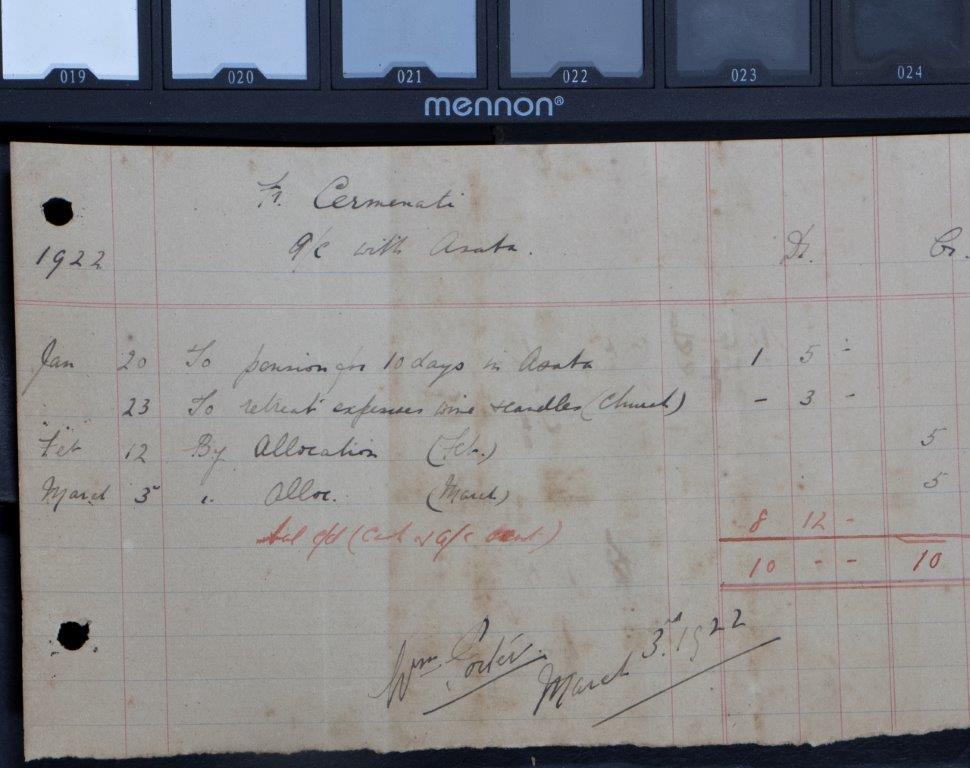 019 020 021 022 023 024
mennon®
Fr. Cermenati
1922 a/c with Asaba. Dr. Cr.
Jan 20 To pension for 10 days in Asaba 1 5 -
23 To retreat expenses wine & candles (Church) - 3 -
Feb 12 By Allocation (Feb.) 5
March 3 " Alloc. (March) 5
bal c/d (Cash & a/c sent) 8 12 -
10 - - 10
Wm Porter.
March 3rd 1922